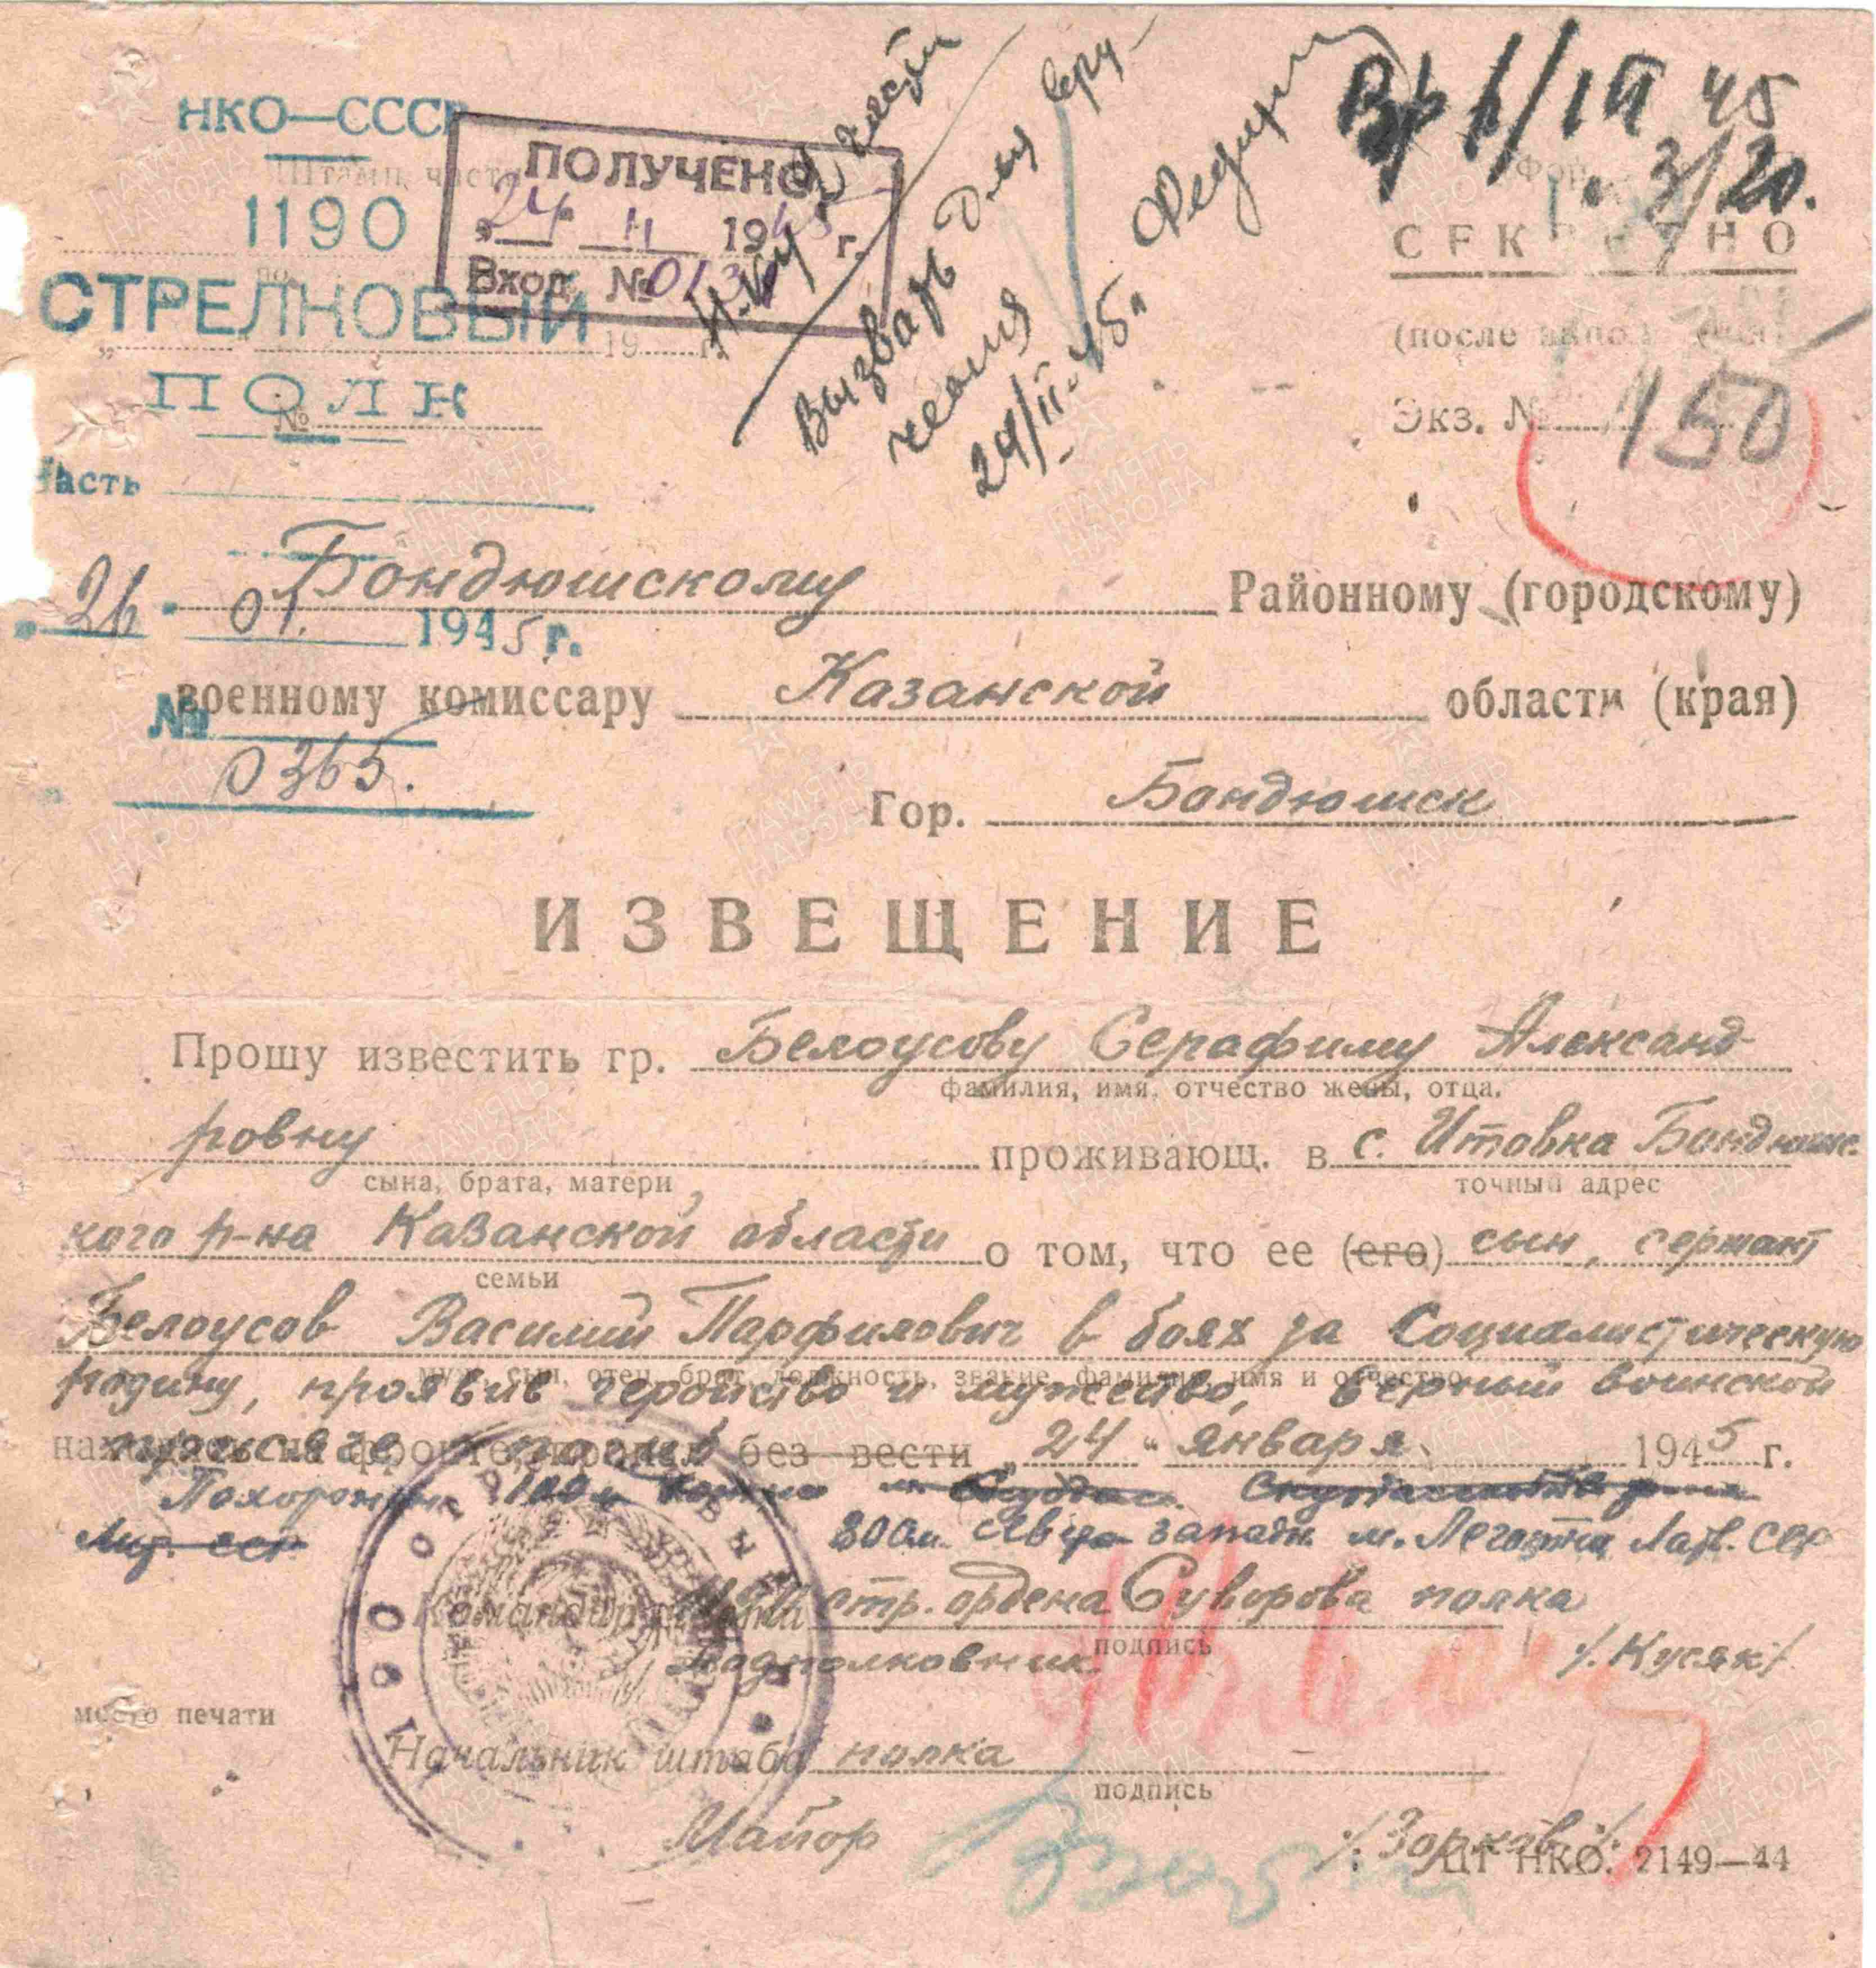 НКО—СССР
Штамп части
1190
СТРЕЛКОВЫЙ
19 г.
ПОЛК
№
Часть
ПОЛУЧЕНО
„24 II 1945 г.
Вход. №013
части
Вызвать для вру-
чения
24/II-45г.
1/III 45
3/20.
СЕКРЕТНО
(после
Экз. № 150
„26" 01. 1945 г.
№ 0365.
Бондюшскому Районному (городскому)
военному комиссару Казанской области (края)
Гор. Бондюшск
ИЗВЕЩЕНИЕ
Прошу известить гр. Белоусову Серафиму Александ-
фамилия, имя, отчество жены, отца,
ровну проживающ. в с. Итовка Бондюшс-
сына, брата, матери точный адрес
кого р-на Казанской области о том, что ее (его) сын, сержант
семьи
Белоусов Василий Парфилович в боях за Социалистическую
муж, сын, отец, брат, должность, звание, фамилия, имя и отчество
родину, проявив геройство и мужество, верный воинской
присяге погиб
находясь на фронте, пропал без вести „24" января 1945 г.
Похоронен
800м. Северо западн. м. Латв. ССР
Лит. ССР
Командир полка стр. ордена Суворова полка
подпись
Подполковник /Кусяк/
место печати
Начальник штаба полка
подпись
Майор /Зорков/
ЦТ НКО. 2149—44